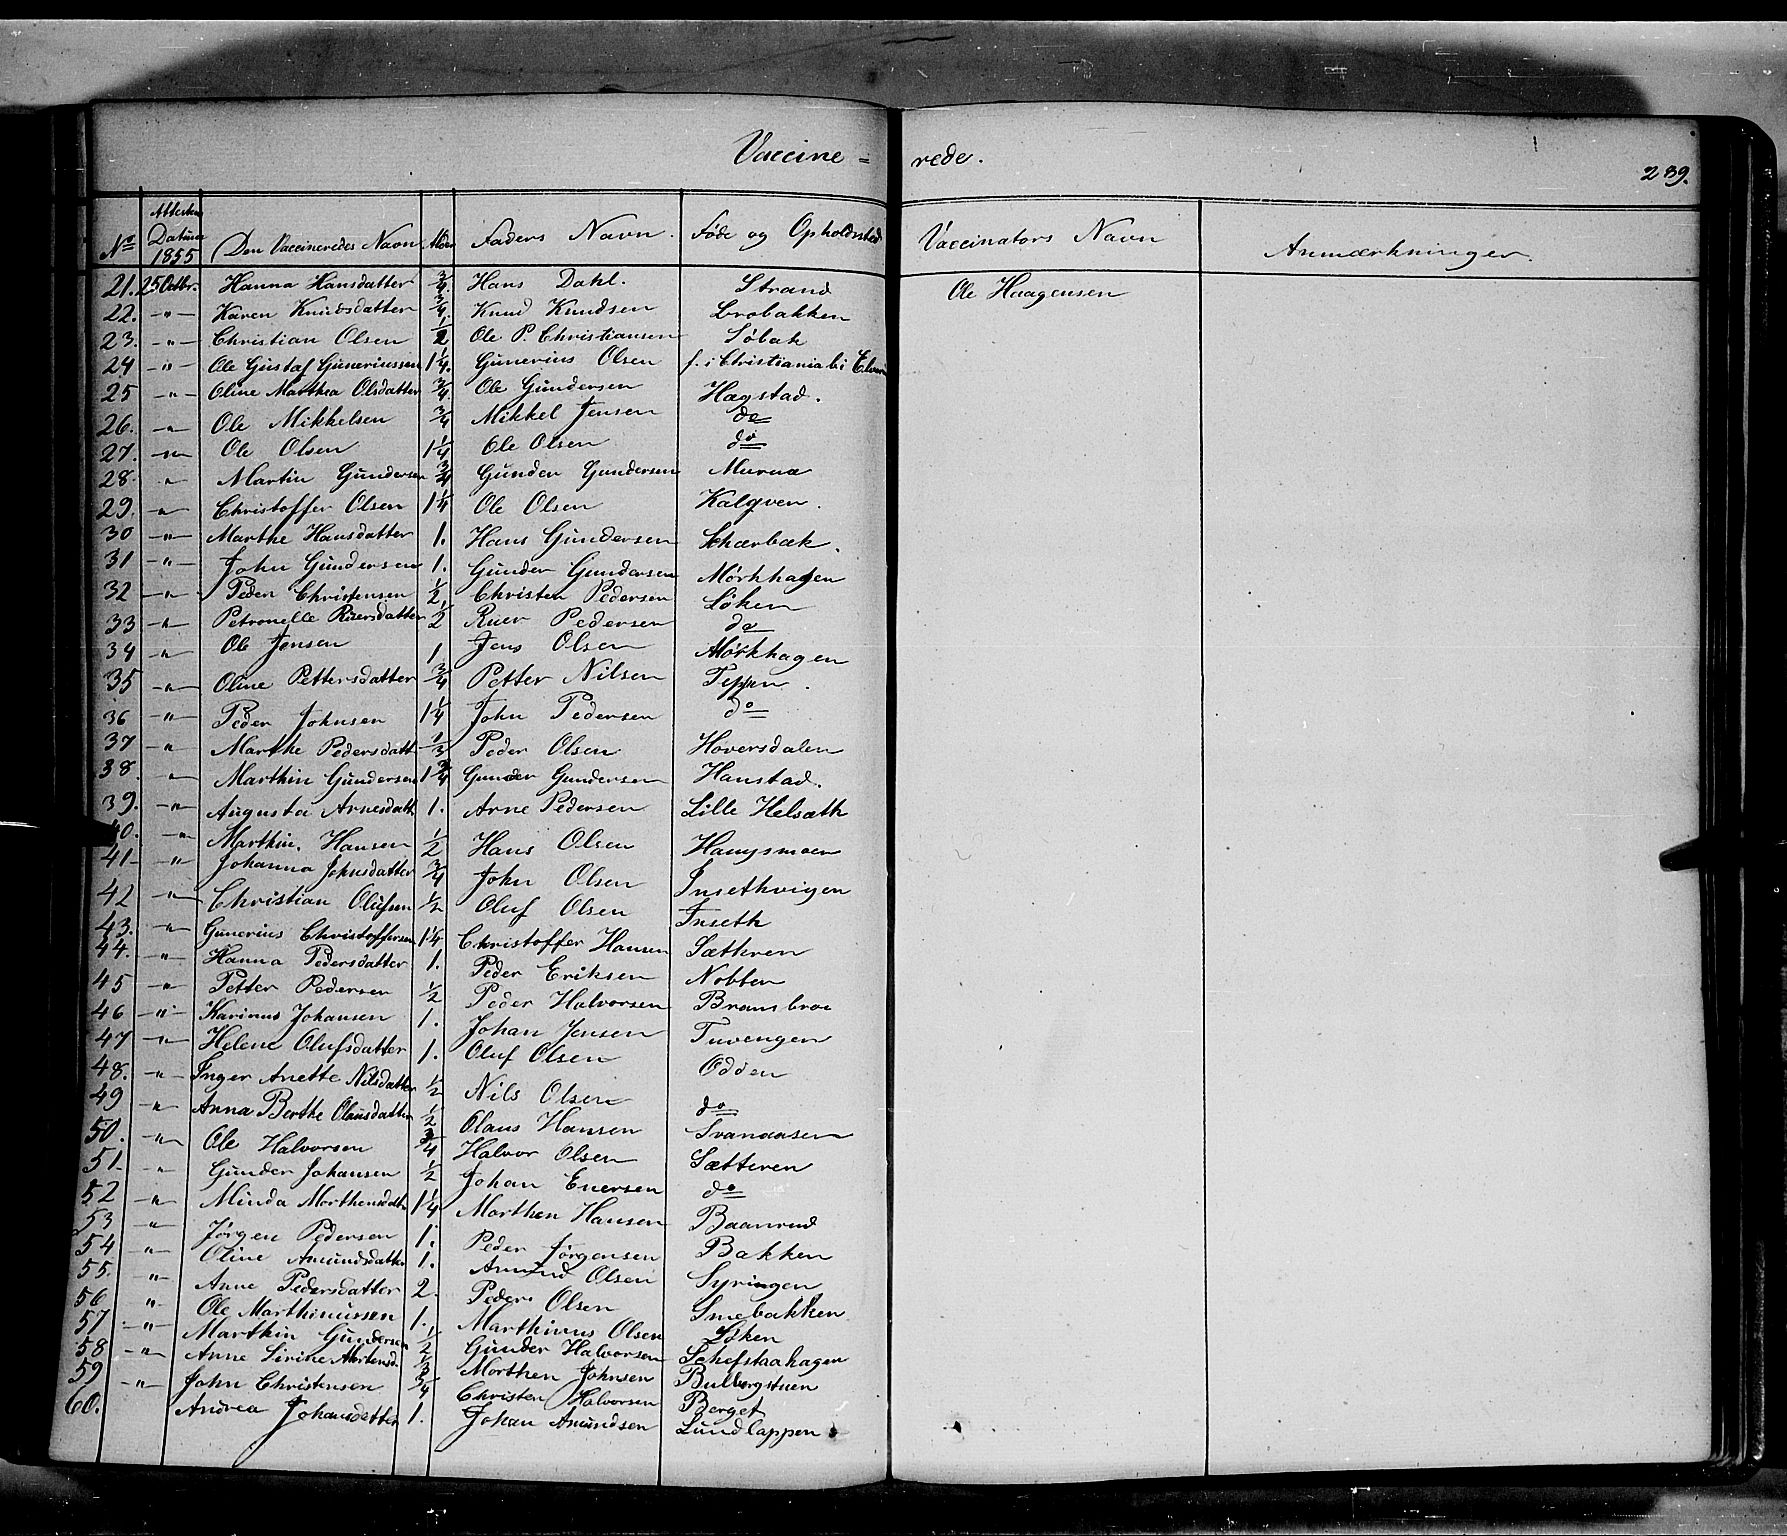 Vaccine = rede.
239.
No Attestens Datum 1855 Den Vaccineredes Navn Alder Faders Navn. Føde og Opholdssted Vaccinators Navn Anmærkninger.
21. 25 Octbr. Hanna Hansdatter 3/4. Hans Dahl. Strand Ole Haagensen
22. -"- Karen Knudsdatter 3/4. Knud Knudsen Brobakken
23. -"- Christian Olsen 1/2 Ole P. Christiansen Søbak
24 -"- Ole Gustaf Guneriussen 1 1/4. Gunerius Olsen f. i Christiania b. i
25 -"- Oline Mathea Olsdatter 3/4 Ole Gundersen Hagstad.
26. -"- Ole Mikkelsen 3/4 Mikkel Jensen do
27. -"- Ole Olsen 1 1/4 Ole Olsen do
28. -"- Martin Gundersen 3/4 Gunder Gundersen
29. -"- Christoffer Olsen 1 1/4 Ole Olsen Kalqven.
30 -"- Marthe Hansdatter 1. Hans Gundersen Schærbæk.
31 -"- John Gundersen 1. Gunder Gundersen Mørkhagen
32 -"- Peder Christensen 1/2 Christen Pedersen Løken
33 -"- Petronelle Ruersdatter 1/2 Ruer Pedersen do
34 -"- Ole Jensen 1 Jens Olsen Mørkhagen
35 -"- Oline Pettersdatter 3/4 Petter Nilsen Teppen.
36 -"- Peder Johnsen 1 1/4 John Pedersen do
37 -"- Marthe Pedersdatt 1/3 Peder Olsen Hoversdalen
38. -"- Marthin Gundersen 1 3/4 Gunder Gundersen Hanstad.
39. -"- Augusta Arnesdatt. 1. Arne Pedersen Lille Helsæth
40. -"- Marthin. Hansen 1/2 Hans Olsen
41 -"- Johanna Johnsdatter 3/4 John Olsen Insethvigen
42 -"- Christian Olufsen 1/2 Oluf Olsen Inseth
43. -"- Gunerius Christoffersen 1 1/4 Christoffer Hansen Sætteren
44. -"- Hanna Pedersdatter 1. Peder Eriksen Nobten
45 -"- Petter Pedersen 1/2 Peder Halvorsen
46 -"- Karinus Johansen 1. Johan Jensen Tuvengen
47 -"- Helene Olufsdatter 1. Oluf Olsen Odden
48. -"- Inger Anette Nilsdatter 1/2 Nils Olsen do
49 -"- Anna Berthe Olausdatter 1/2 Olaus Hansen Svanaasen
50. -"- Ole Halvorsen 3/4 Halvor Olsen Sætteren
51. -"- Gunder Johansen 1/2 Johan Enersen do
52 -"- Minda Morthensdatter 1 1/4 Morthen Hansen Baanrud
53 -"- Jørgen Pedersen 1. Peder Jørgensen Bakken
54 -"- Oline Amundsdatter 1. Amund Olsen Syringen
55. -"- Anne Pedersdatter 2. Peder Olsen Smebakken
56 -"- Ole Marthinussen 1. Marthinus Olsen Løken
57 -"- Marthin Gundersen 1/2 Gunder Halvorsen Schefstaahagen
58 -"- Anne Sirine Mortensd. 1/3 Morthen Johnsen Bulbergstuen
59 -"- John Christensen 3/4 Christen Halvorsen Berget
60. Andrea Johansdatter 1. Johan Amundsen Lundlappen